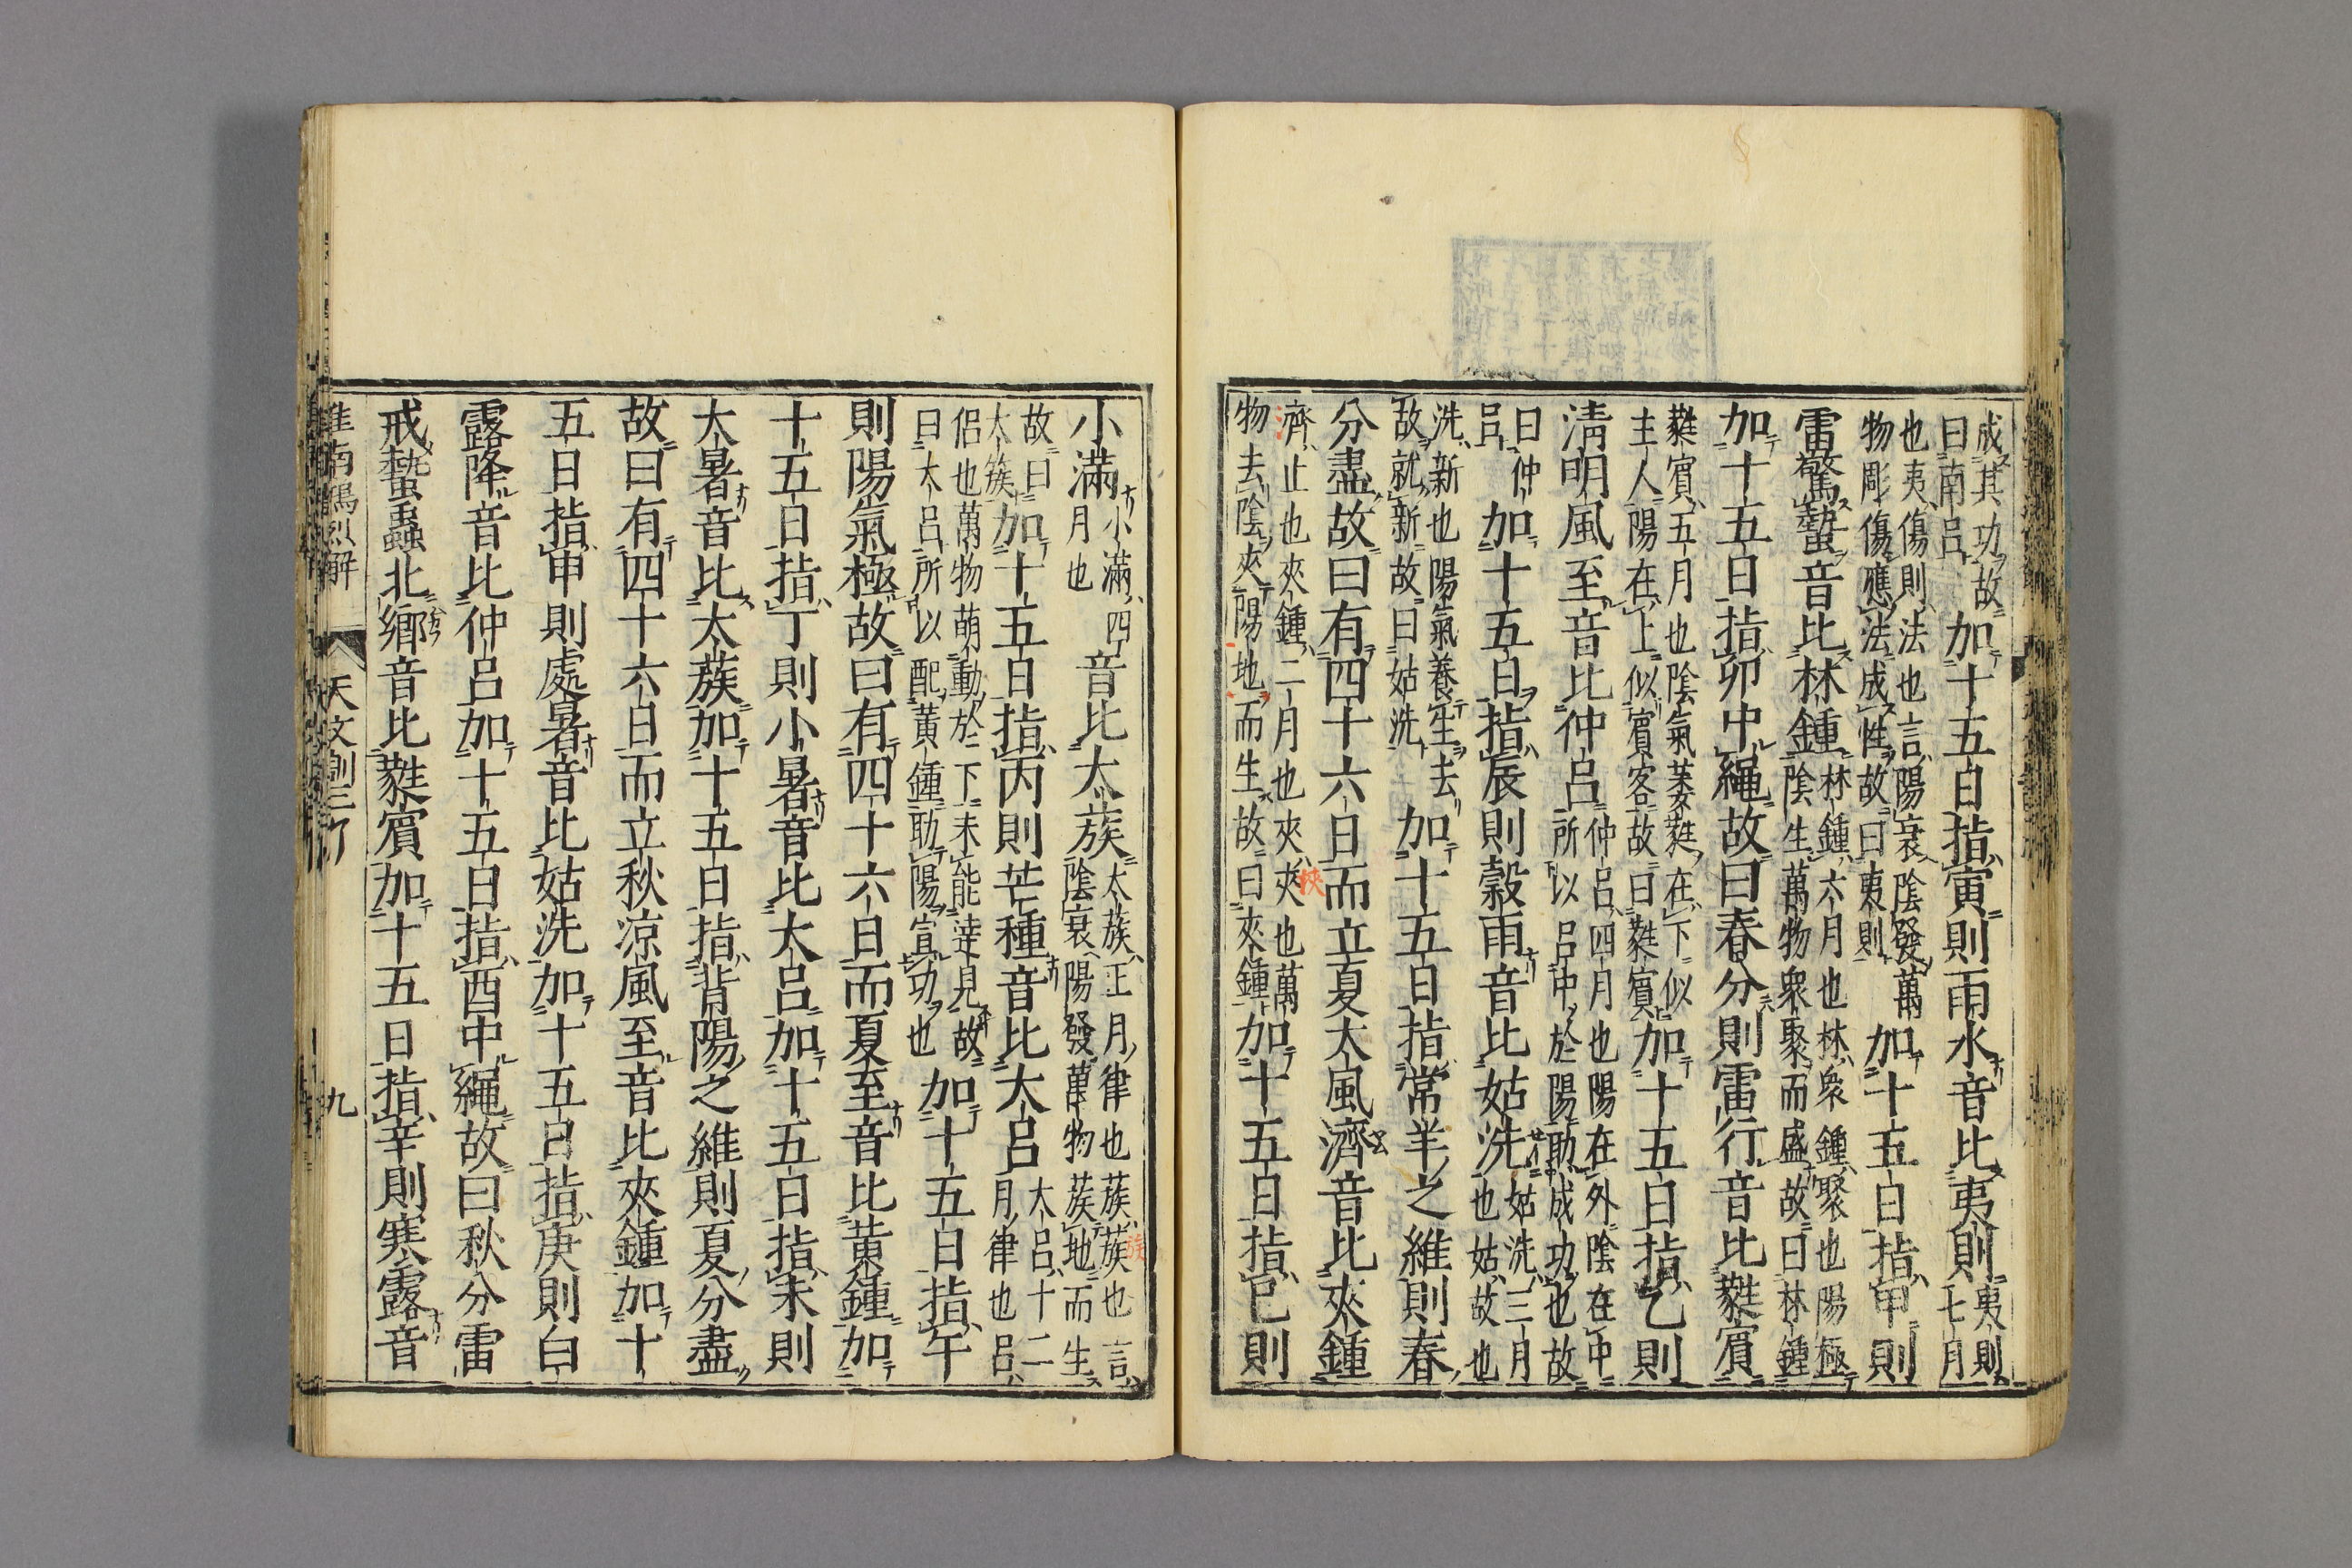 成其功故曰南呂加十五日指寅則雨水音比夷則夷則七月
也夷傷則法也言陽衰陰發萬物彫傷應法成性故曰夷則加十五日指甲則
雷驚蟄音比林鍾林鍾六月也林衆鍾聚也陽極陰生萬物衆聚而盛故曰林鍾
加十五日指卯中繩故曰春分則雷行音比蕤賓
蕤賓五月也陰氣萎蕤在下似主人陽在上似賓客故曰蕤賓加十五日指乙則
清明風至音比仲呂仲呂四月也陽在外陰在中所以呂中於陽助成功也故
曰仲呂加十五日指辰則穀雨音比姑洗姑洗三月也姑故也
洗新也陽氣養生去故就新故曰姑洗加十五日指常羊之維則春
分盡故曰有四十六日而立夏大風濟音比夾鍾
濟止也夾鍾二月也夾夾也萬物去陰夾陽地而生故曰夾鍾加十五日指巳則
小滿小滿四月也音比太蔟太蔟正月律也蔟蔟也言陰衰陽發萬物蔟地而生
故曰太簇加十五日指丙則芒種音比大呂大呂十二月律也呂
侶也萬物萌動於下未能達見故曰大呂所以配黃鍾助陽宣功也加十五日指午
則陽氣極故曰有四十六日而夏至音比黃鍾加
十五日指丁則小暑音比大呂加十五日指未則
大暑音比太蔟加十五日指背陽之維則夏分盡
故曰有四十六日而立秋涼風至音比夾鍾加十
五日指申則處暑音比姑洗加十五日指庚則白
露降音比仲呂加十五日指酉中繩故曰秋分雷
戒蟄蟲北鄉音比蕤賓加十五日指辛則寒露音
淮南鴻烈解 天文訓三 九